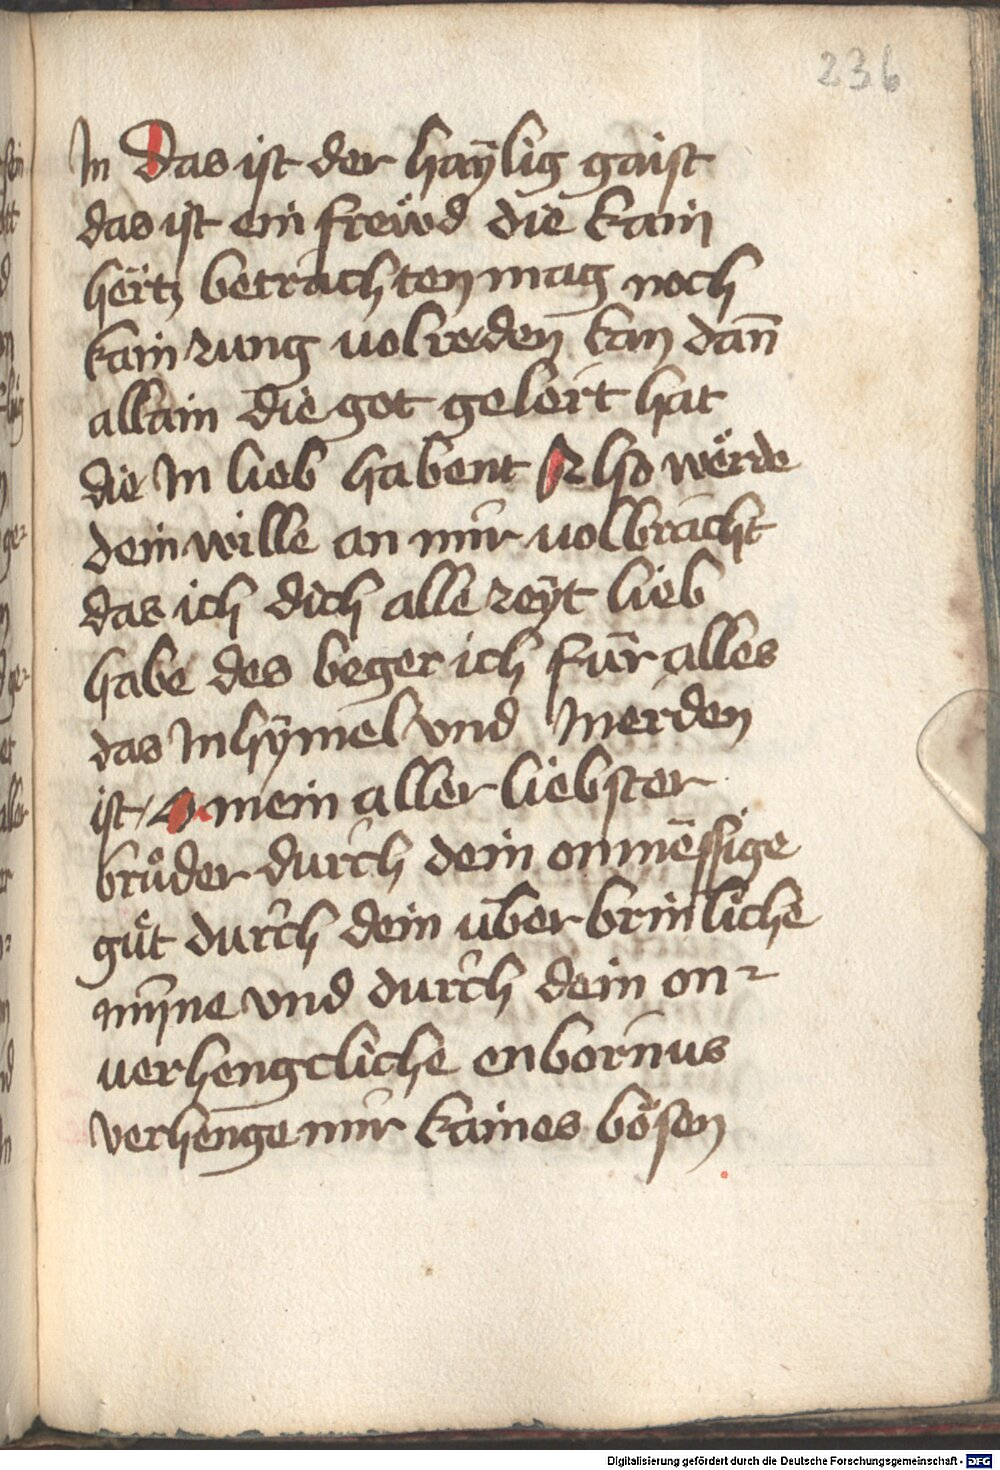 236
In Das ist der haÿlig gaist
das ist ein freẅd die kain
hertz betrachten mag noch
kain zung volreden kan dañ
allain die got gelert hat
die In lieb habent Also wërde
dein wille an mir volbracht
das ich dich alle zeÿt lieb
habe des beger ich für alles
das In hÿmel vnd In erden
ist / O mein aller liebster
brůder durch dein onmëssige
güt durch dein über brinliche
mÿne vnd durch dein on
verhengcliche enbornus
verhenge mir kaines bösen
Digitalisierung gefördert durch die Deutsche Forschungsgemeinschaft - DFG